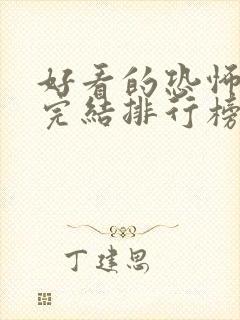 好看的恐怖
完結排行榜
丁建思